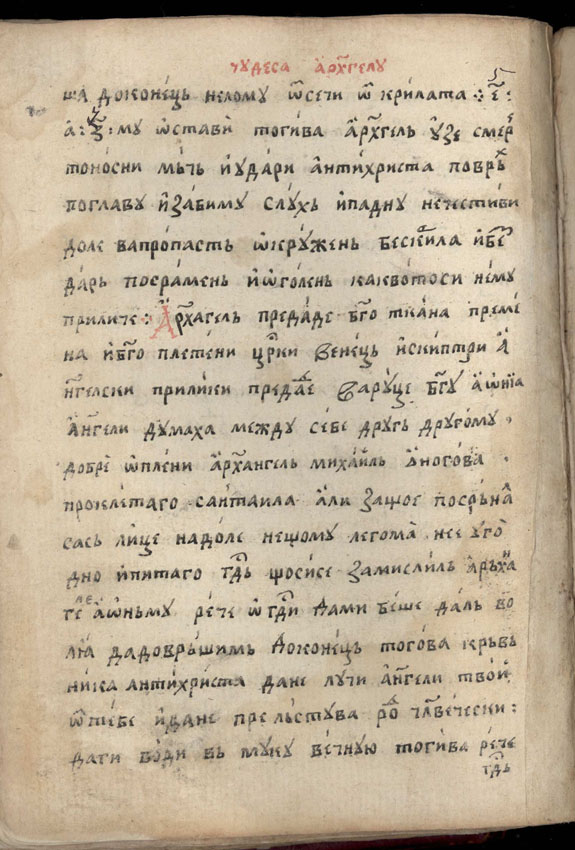 чудеса арх҃гелу
ша доконець нелому ѿсечи ѿ крилата :
му ѡстави тогива арх҃гель узе смер
тоносни мьчь и удари антихриста поврь
поглаву изабиму слухь ипадну нечестиви
доле вапропасть ѡкружень
дарь посрамень иѡголень каквотоси нему
приличе : Арх҃агель предаде бг҃о ткана преме
на ибг҃о плетени цр҃ки венець искиптри а
нг҃елски прилики предаде варуце бг҃у аѡнїа
анг҃ели думаха между себе другь другому
добре ѡплени арх҃ангель михаиль оногова
проклетаго санѳаила али защое посрьна
сась лице надоле нещому легома нее уго
дно ипитаго гд҃ь щосисе замислиль арьха
ге аѡньму рече ѿ гд҃и дами беше даль во
лїа дадоврьшимь доконець тогова крьвь
ника антихриста дане лучи анг҃ели твои
ѿтебе идане прельстува ро чл҃вечески :
дати води вь муку вечную тогива рече
гд҃ь